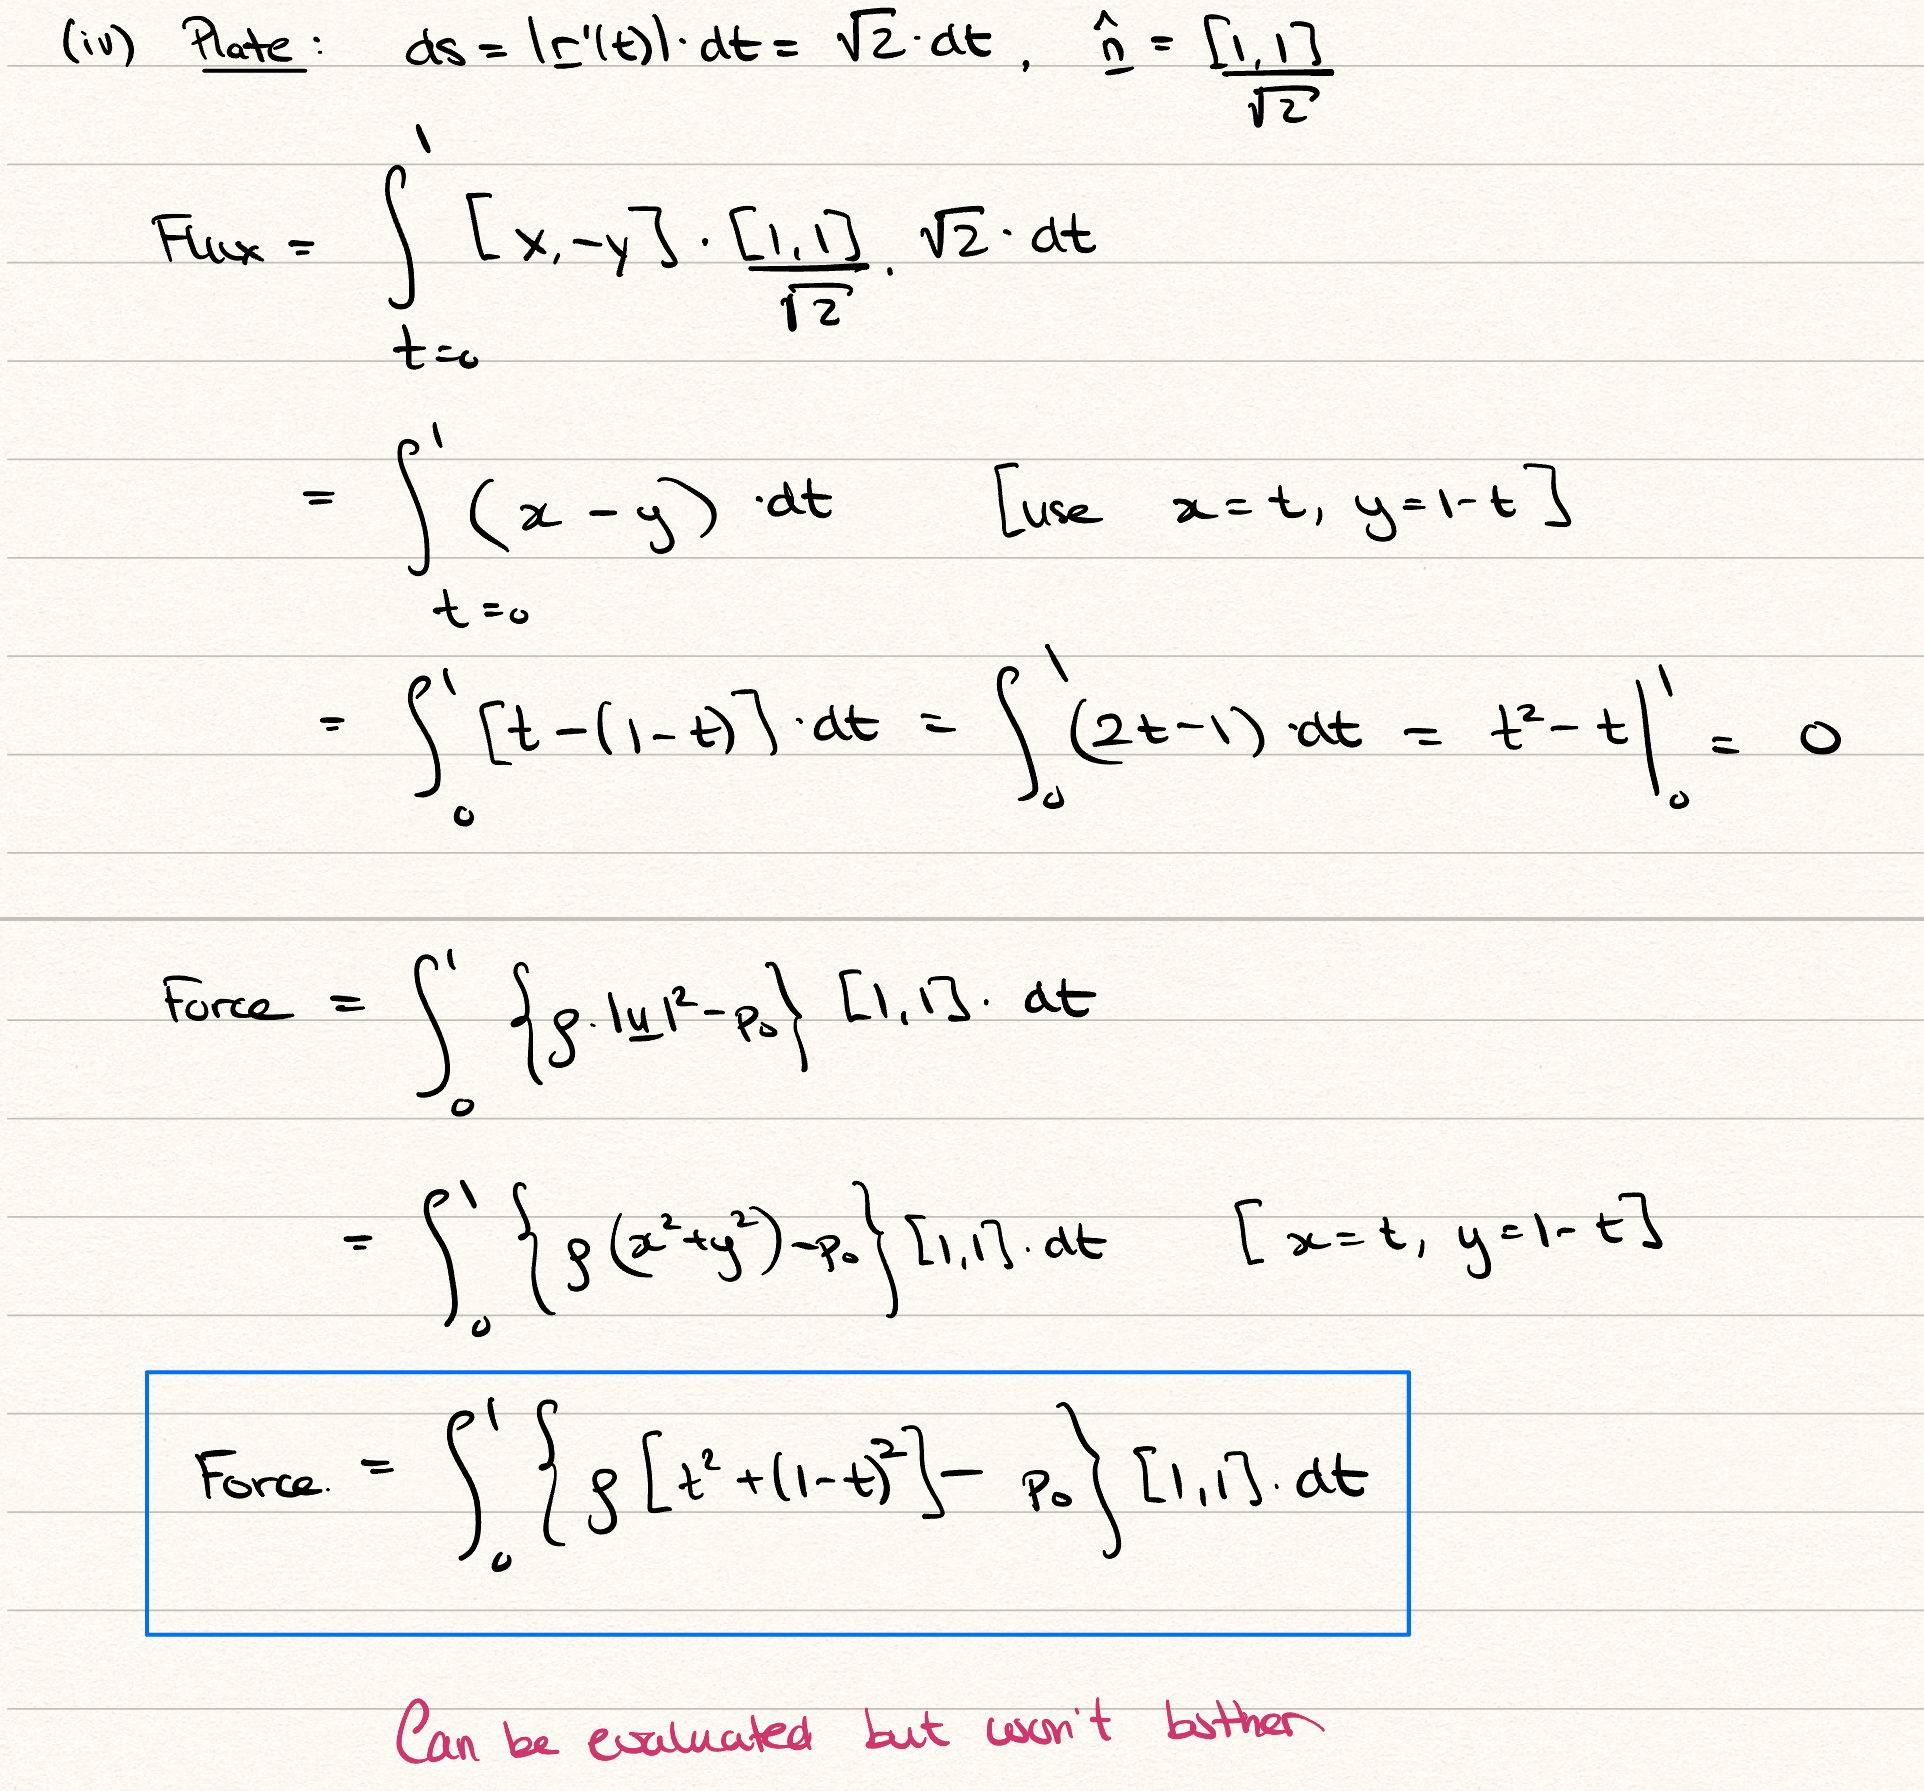 (iv) Plate: ds = |r'(t)|·dt = √2·dt, n̂ = [1,1]/√2
Flux = ∫_{t=0}^{1} [x,-y]·[1,1]/√2 · √2·dt
= ∫_{t=0}^{1} (x-y)·dt [use x=t, y=1-t]
= ∫_0^1 [t-(1-t)]·dt = ∫_0^1 (2t-1)·dt = t²-t|_0^1 = 0
Force = ∫_0^1 {ρ·|u|²-p₀} [1,1]·dt
= ∫_0^1 {ρ(x²+y²)-p₀} [1,1]·dt [x=t, y=1-t]
Force = ∫_0^1 {ρ[t²+(1-t)²] - p₀} [1,1]·dt
Can be evaluated but won't bother